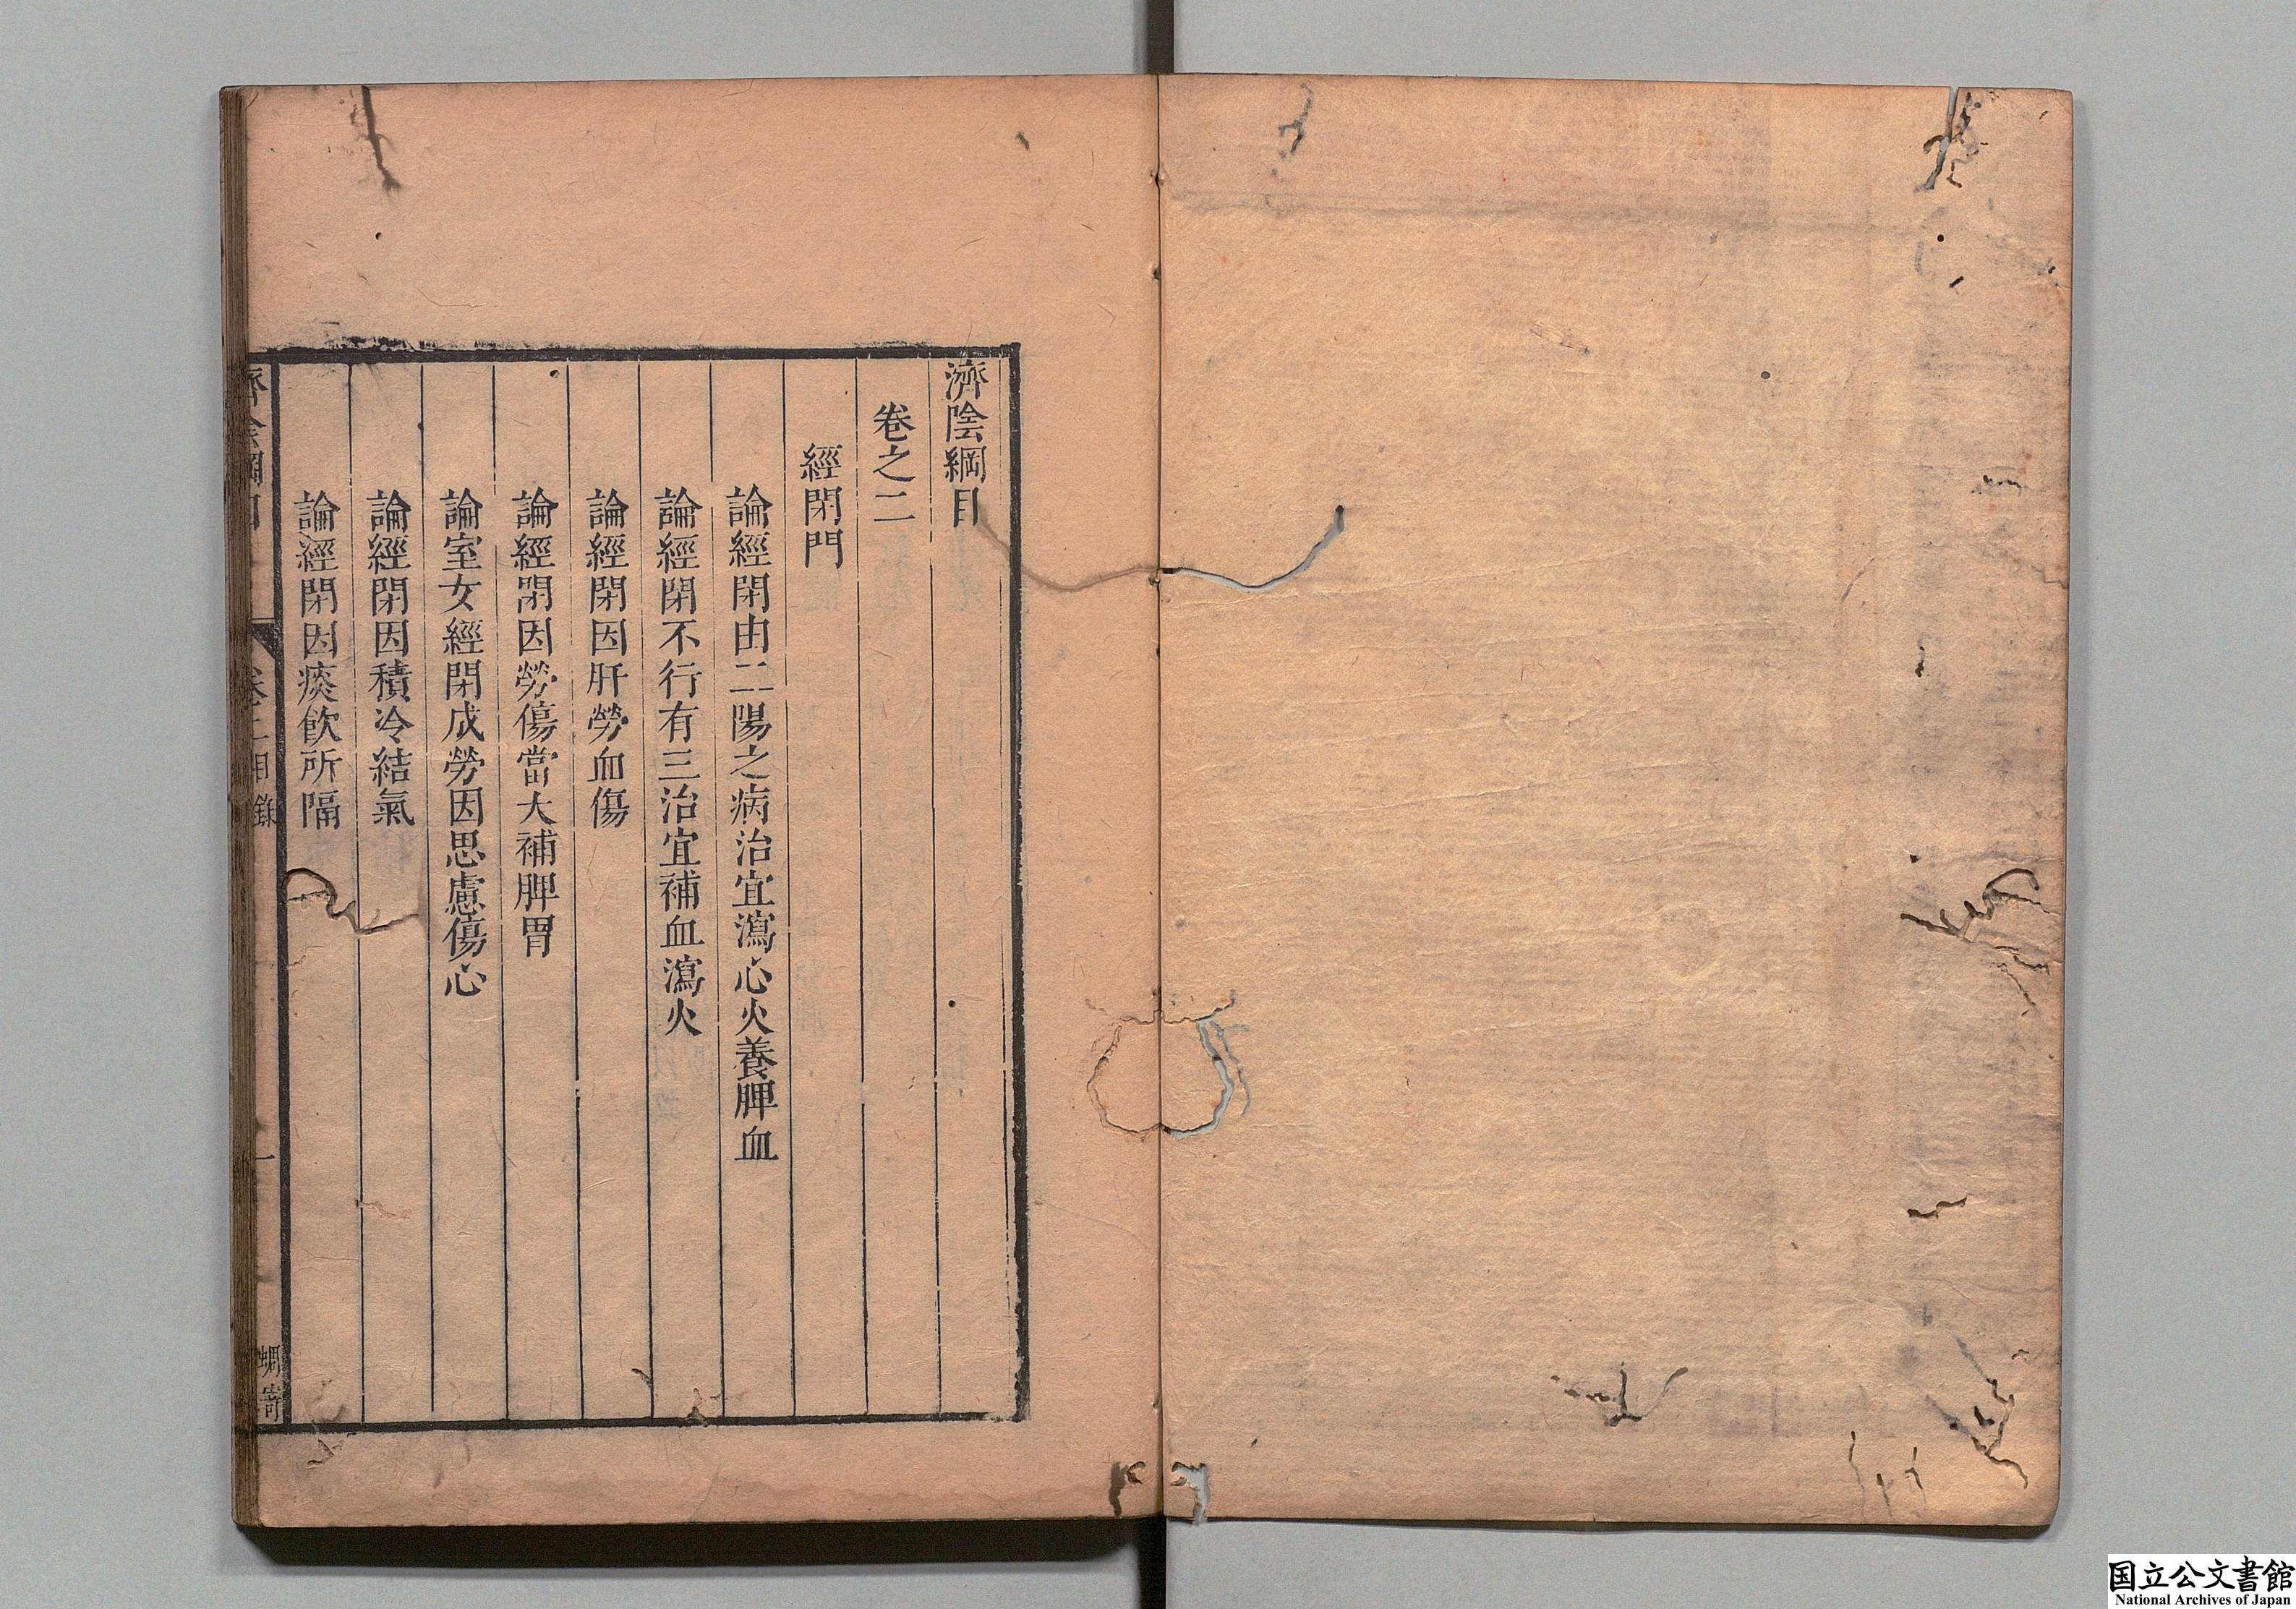 濟陰綱目
卷之二
經閉門
論經閉由二陽之病治宜瀉心火養脾血
論經閉不行有三治宜補血瀉火
論經閉因肝勞血傷
論經閉因勞傷當大補脾胃
論室女經閉成勞因思慮傷心
論經閉因積冷結氣
論經閉因痰飲所隔
濟陰綱目
卷二目錄
一
蜩寄
国立公文書館
National Archives of Japan